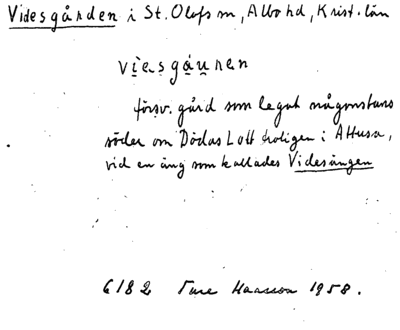 Videsgården i St. Olofs sn, Albo hd, Krist. län
viesgá̤u̱nen
försv. gård som legat någonstans
söder om Dödas Lott troligen i Attusa,
vid en äng som kallades Videsängen
6182 Ture Haasson 1958.